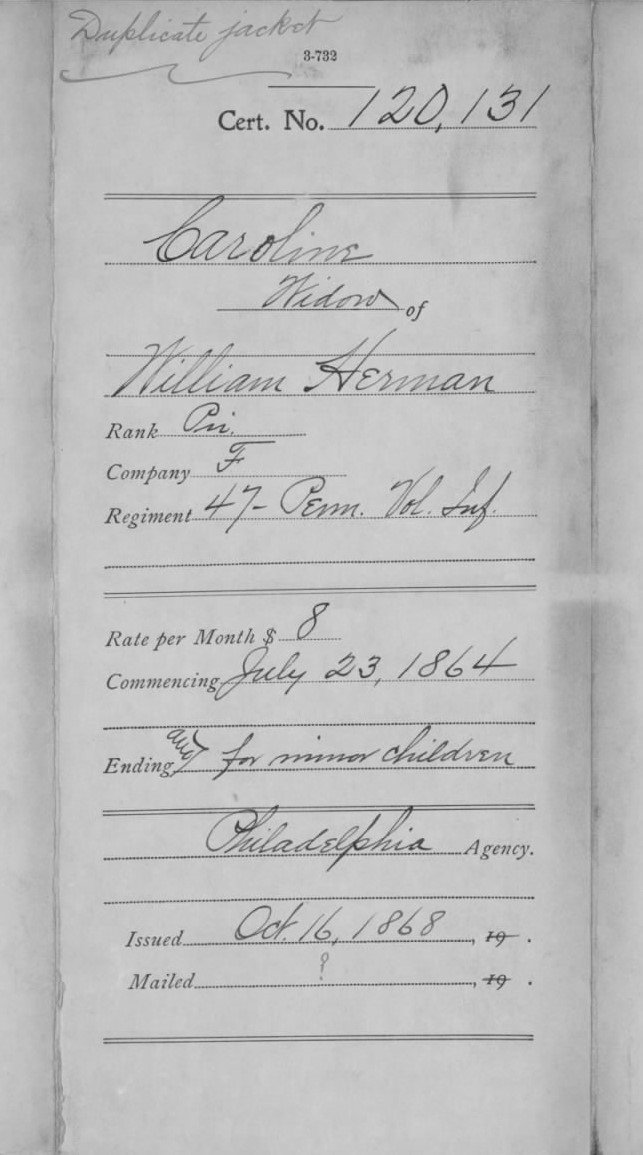 Duplicate jacket
3-732
Cert. No. 120,131
Caroline
Widow of
William Herman
Rank Pri.
Company F
Regiment 47- Penn. Vol. Inf.
Rate per Month $ 8
Commencing July 23, 1864
Ending and for minor children
Philadelphia Agency.
Issued Oct. 16, 1868, 19 .
Mailed ? , 19 .